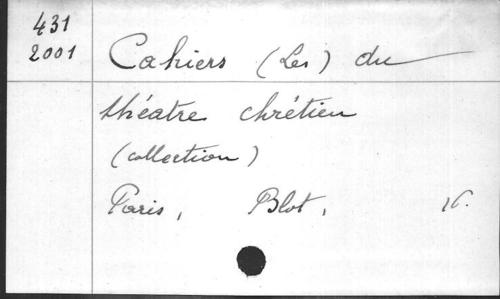 431
2001
Cahiers (Les) du
théatre chrétien
(collection)
Paris, Blot, 16.